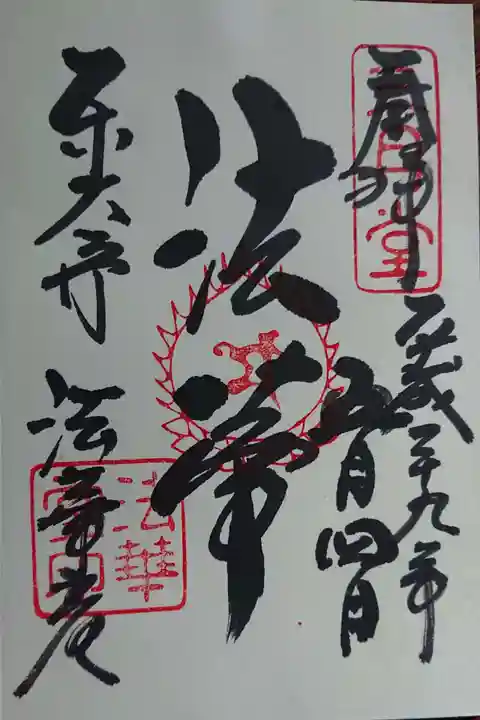 奉拝
平成二十九年
五月四日
法華
東大寺 法華堂
三月堂
法華
堂印